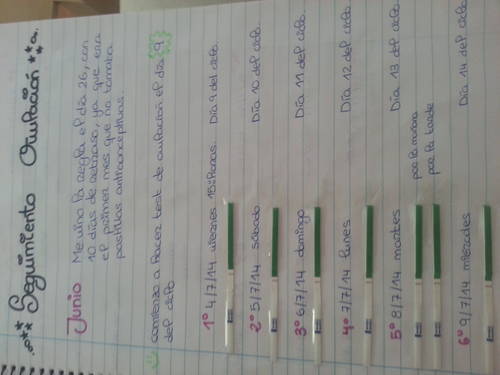 Seguimiento Ovulación
Junio
Me vino la regla el día 26, con
10 días de retraso, ya que era
el primer mes que no tomaba
pastillas anticonceptivas.
comienzo a hacer test de ovulación el día 9
del ciclo
1º 4/7/14 viernes 15:horas. Día 9 del ciclo.
2º 5/7/14 sábado Día 10 del ciclo.
3º 6/7/14 domingo Día 11 del ciclo.
4º 7/7/14 lunes Día 12 del ciclo.
5º 8/7/14 martes Día 13 del ciclo
por la mañana
por la tarde
6º 9/7/14 miercoles Día 14 del ciclo.